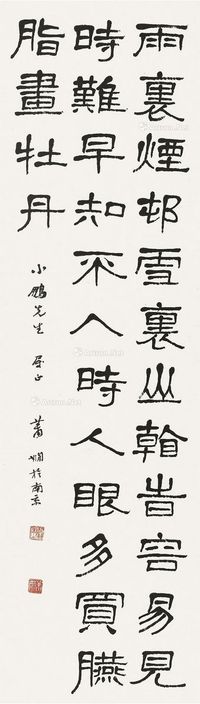 雨裏煙邨雪裏山看旹容易見
時難早知不入時人眼多買臙
脂畫牡丹
小鵬先生 正 蕭嫻於南京